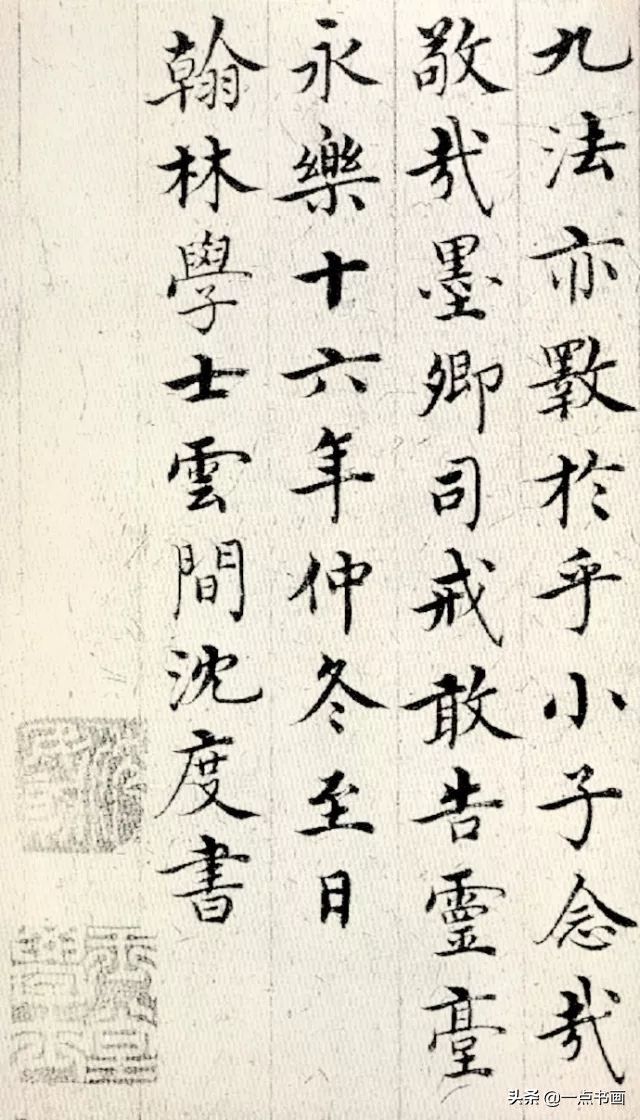 九法亦斁於乎小子念哉
敬哉墨卿司戒敢告靈臺
永樂十六年仲冬至日
翰林學士雲間沈度書
头条 @一点书画